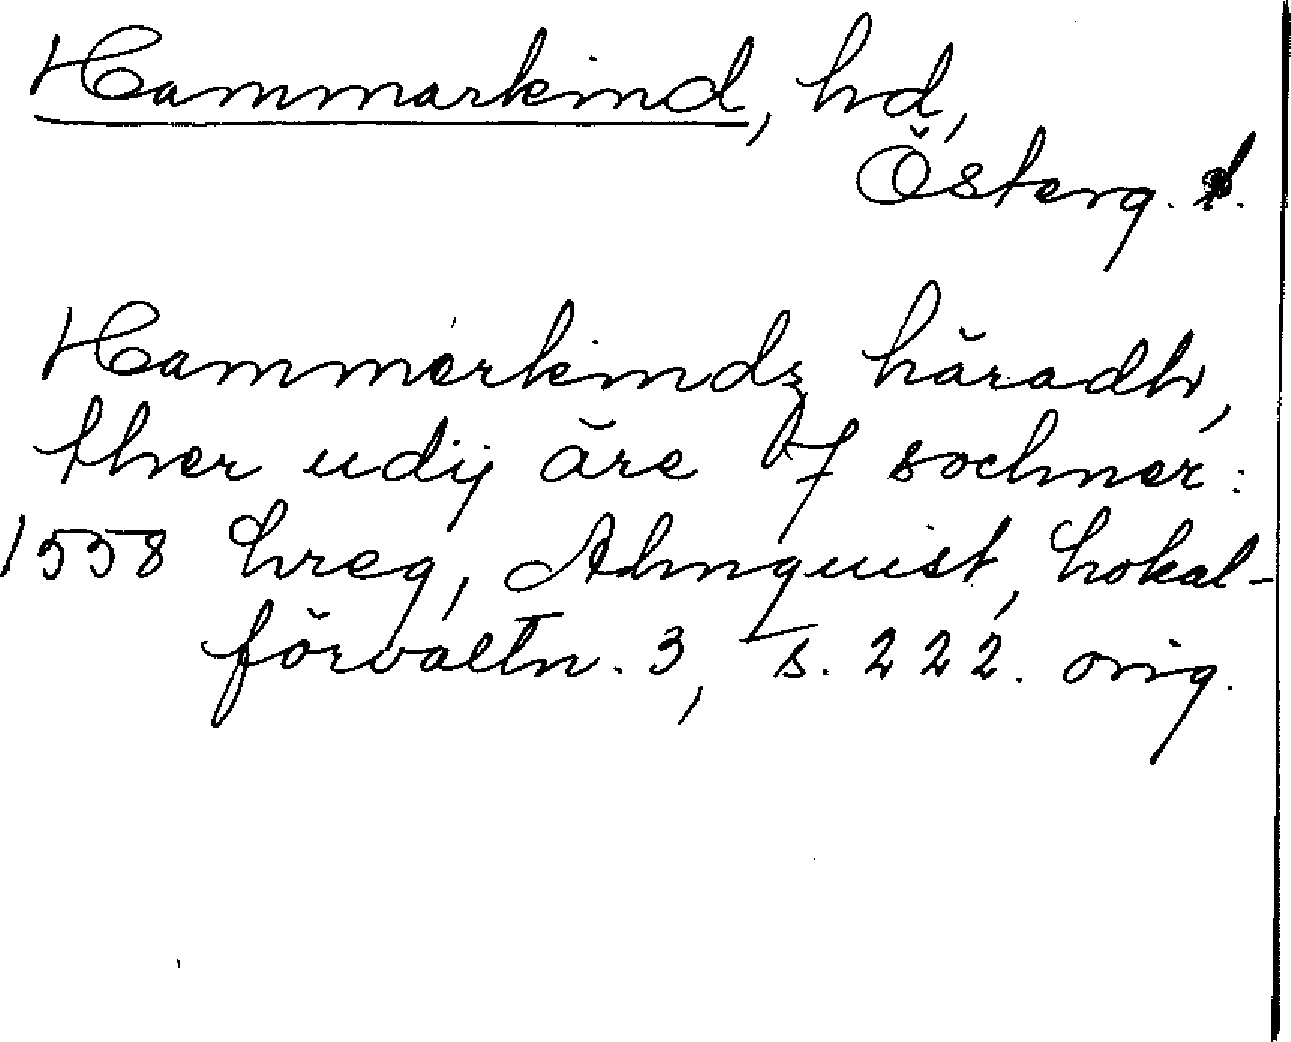 Hammarkind, hd,
Österg. l.
Hammerkindz häradh,
ther udij äre sochner:
1558 Lreg, Almquist, Lokal-
förvaltn. 3, s. 222. orig.